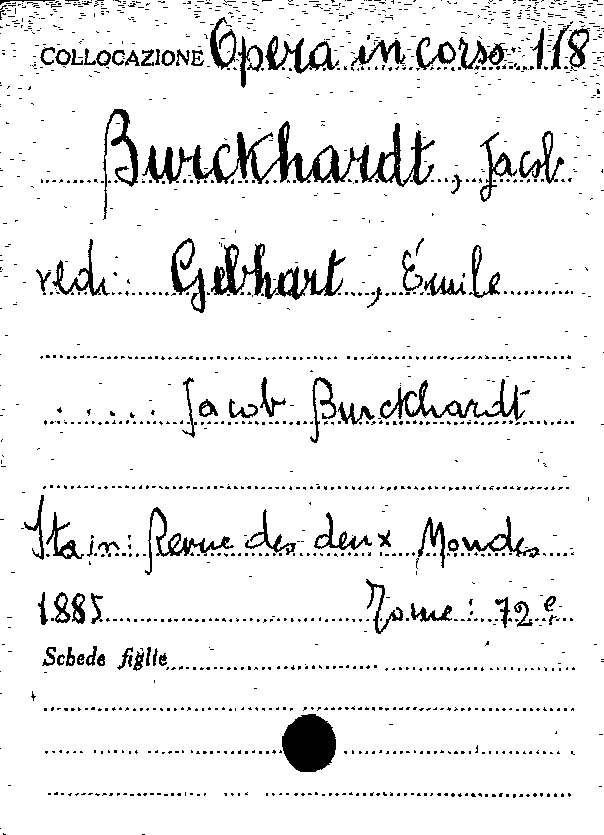 COLLOCAZIONE Opera in corso: 118
Burckhardt, Jacob
vedi: Gebhart, Émile
..... Jacob Burckhardt
Sta in: Revue des deux Mondes
1885 Tome: 72e
Schede figlie